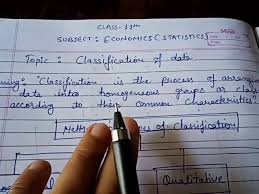 CLASS-11th
SUBJECT: ECONOMICS (STATISTICS)
Topic: Classification of data
"Classification is the process of
data into homogeneous groups or
according to their common characteristics"
of Classification
Qualitative